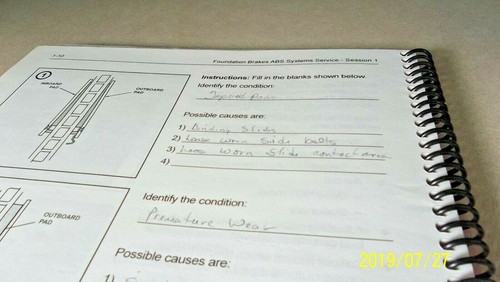 1-32
Foundation Brakes ABS Systems Service - Session 1
1
INBOARD PAD
OUTBOARD PAD
Instructions: Fill in the blanks shown below.
Identify the condition:
Possible causes are:
1) Binding Slides
2) Loose worn Slide bolts
3) Loose Worn Slide contact area
4)
OUTBOARD PAD
Identify the condition:
Premature Wear
Possible causes are:
1)
2019/07/27